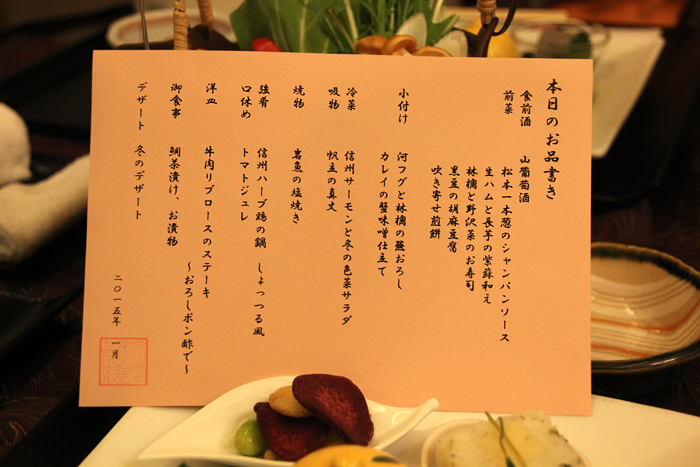 本日のお品書き
食前酒 山葡萄酒
前菜 松本一本葱のシャンパンソース
生ハムと長芋の紫蘇和え
林檎と野沢菜のお寿司
黒豆の胡麻豆腐
吹き寄せ煎餅
小付け 河フグと林檎の蕪おろし
カレイの蟹味噌仕立て
冷菜 信州サーモンと冬の色菜サラダ
吸物 帆立の真丈
焼物 岩魚の塩焼き
強肴 信州ハーブ鶏の鍋 しょっつる風
口休め トマトジュレ
洋皿 牛肉リブロースのステーキ
～おろしポン酢で～
御食事 鯛茶漬け、お漬物
デザート 冬のデザート
二〇一五年 一月